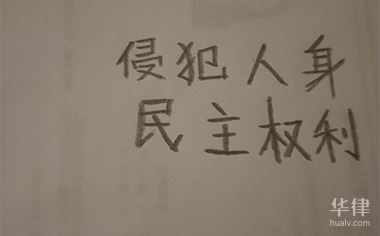 侵犯人身
民主权利
华律
hualv.com